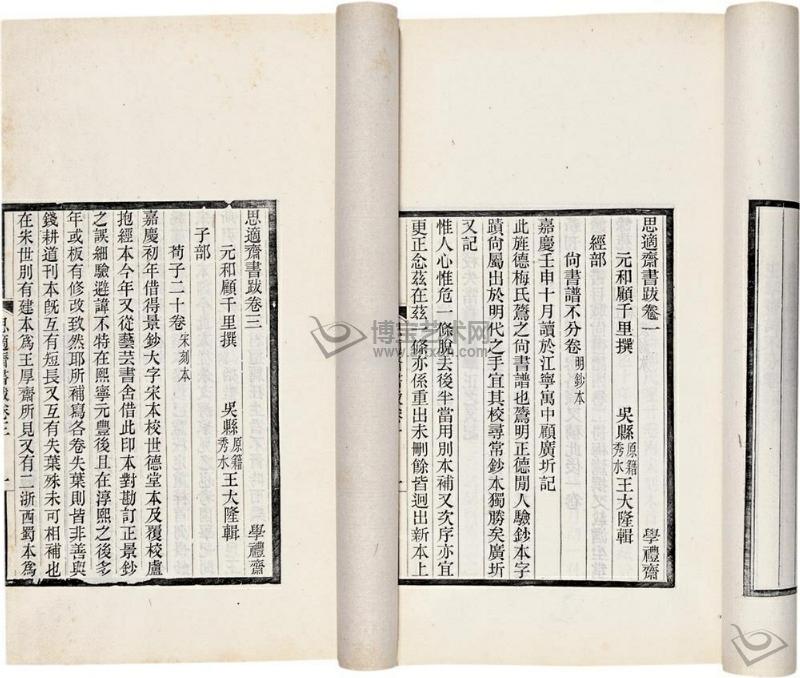 思適齋書跋卷一　學禮齋
元和顧千里撰　吳縣原籍秀水王大隆輯
經部
尙書譜不分卷明鈔本
嘉慶壬申十月讀於江寧寓中顧廣圻記
此旌德梅氏鷟之尙書譜也鷟明正德閒人驗鈔本字
蹟尙屬出於明代之手宜其校尋常鈔本獨勝矣廣圻
又記
惟人心惟危一條脫去後半當用別本補又次序亦宜
更正念茲在茲一條亦係重出未刪餘皆迥出新本上
思適齋書跋卷三　學禮齋
元和顧千里撰　吳縣原籍秀水王大隆輯
子部
荀子二十卷宋刻本
嘉慶初年借得景鈔大字宋本校世德堂本及覆校盧
抱經本今年又從藝芸書舍借此印本對勘訂正景鈔
之誤細驗避諱不特在熙寧元豐後且在淳熙之後多
年或板有修改致然耶所補寫各卷失葉則皆非善與
錢耕道刊本旣互有短長又互有失葉殊未可相補也
在宋世別有建本爲王厚齋所見又有二浙西蜀本爲
思適齋書跋卷三
一
博宝艺术网